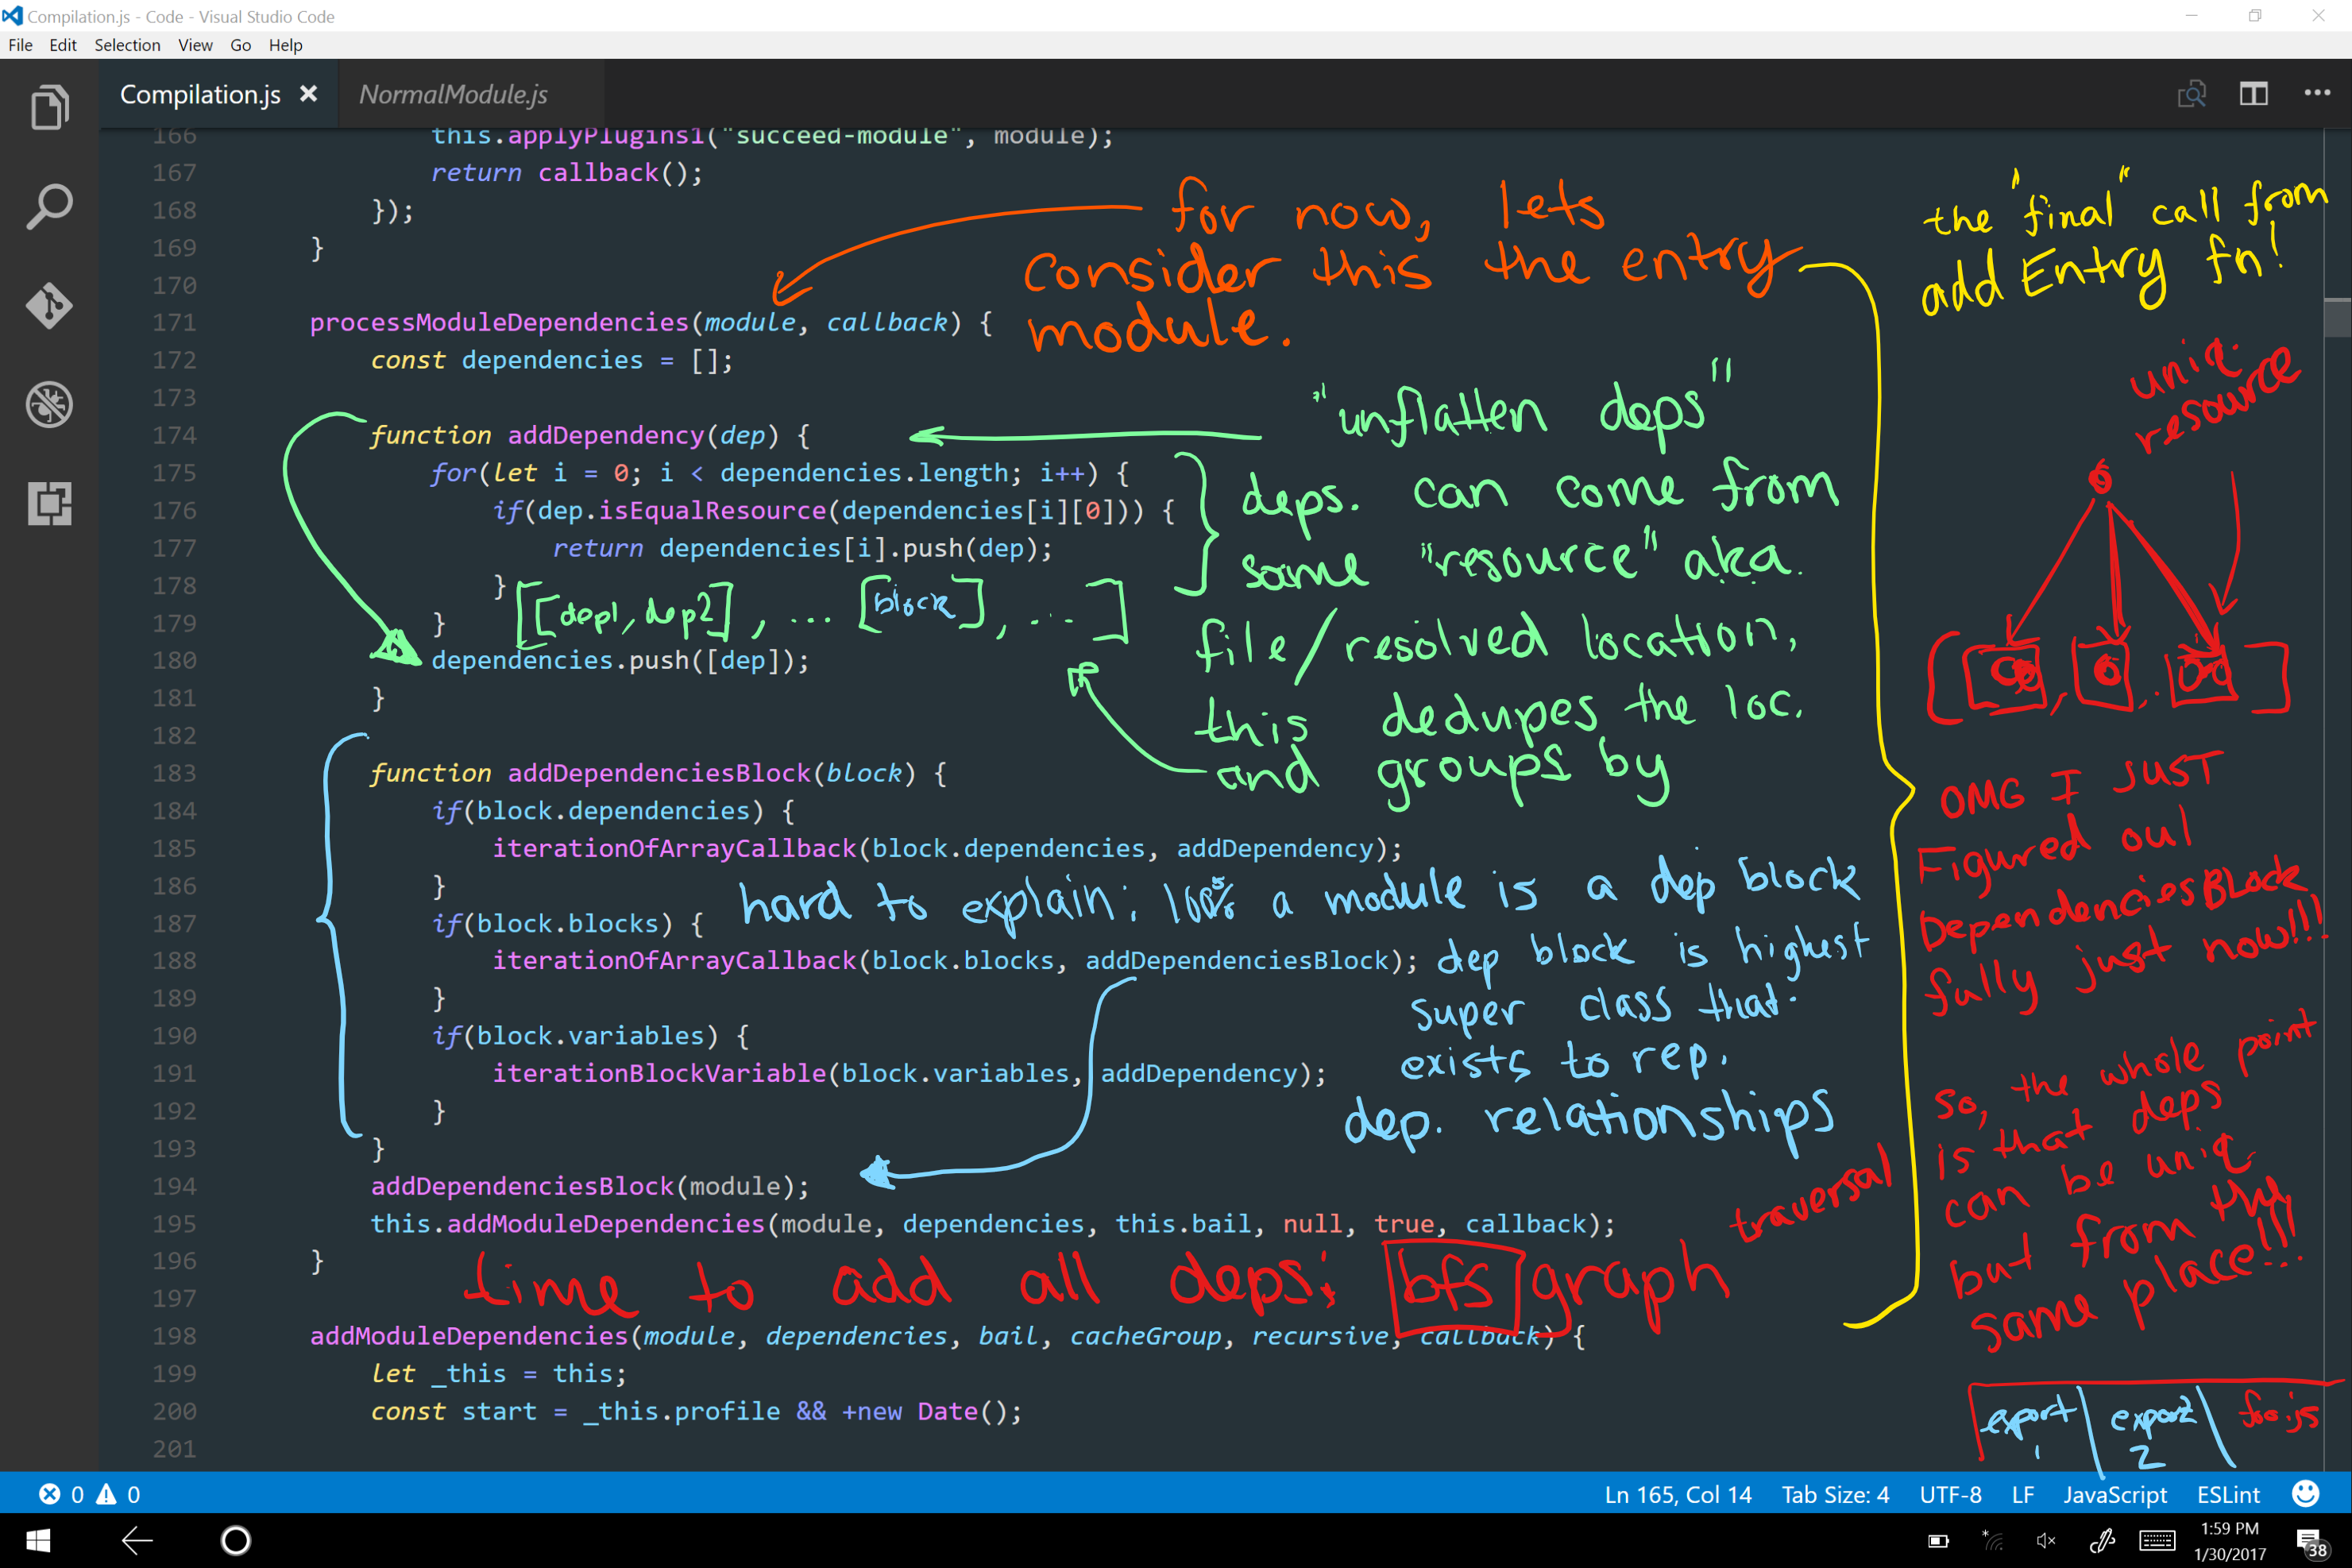 Compilation.js - Code - Visual Studio Code
File Edit Selection View Go Help
Compilation.js × NormalModule.js
166 this.applyPlugins1("succeed-module", module);
167 return callback();
168 });
169 }
170
171 processModuleDependencies(module, callback) {
172 const dependencies = [];
173
174 function addDependency(dep) {
175 for(let i = 0; i < dependencies.length; i++) {
176 if(dep.isEqualResource(dependencies[i][0])) {
177 return dependencies[i].push(dep);
178 }
179 }
180 dependencies.push([dep]);
181 }
182
183 function addDependenciesBlock(block) {
184 if(block.dependencies) {
185 iterationOfArrayCallback(block.dependencies, addDependency);
186 }
187 if(block.blocks) {
188 iterationOfArrayCallback(block.blocks, addDependenciesBlock);
189 }
190 if(block.variables) {
191 iterationBlockVariable(block.variables, addDependency);
192 }
193 }
194 addDependenciesBlock(module);
195 this.addModuleDependencies(module, dependencies, this.bail, null, true, callback);
196 }
197
198 addModuleDependencies(module, dependencies, bail, cacheGroup, recursive, callback) {
199 let _this = this;
200 const start = _this.profile && +new Date();
201
for now, lets
consider this the entry
module.
"unflatten deps"
deps. can come from
same "resource" aka.
file/resolved location,
this dedupes the loc.
and groups by
[[dep1, dep2], ... [block], ... ]
hard to explain: 100% a module is a dep block
dep block is highest
super class that
exists to rep.
dep. relationships
time to add all deps: bfs graph
traversal
the "final" call from
add Entry fn!
uniq.
resource
OMG I JUST
Figured out
DependenciesBLock
fully just now!!!
so, the whole point
is that deps
can be uniq
but from the
same place!!!
export 1 export 2 foo.js
0 0 Ln 165, Col 14 Tab Size: 4 UTF-8 LF JavaScript ESLint
1:59 PM
1/30/2017
38